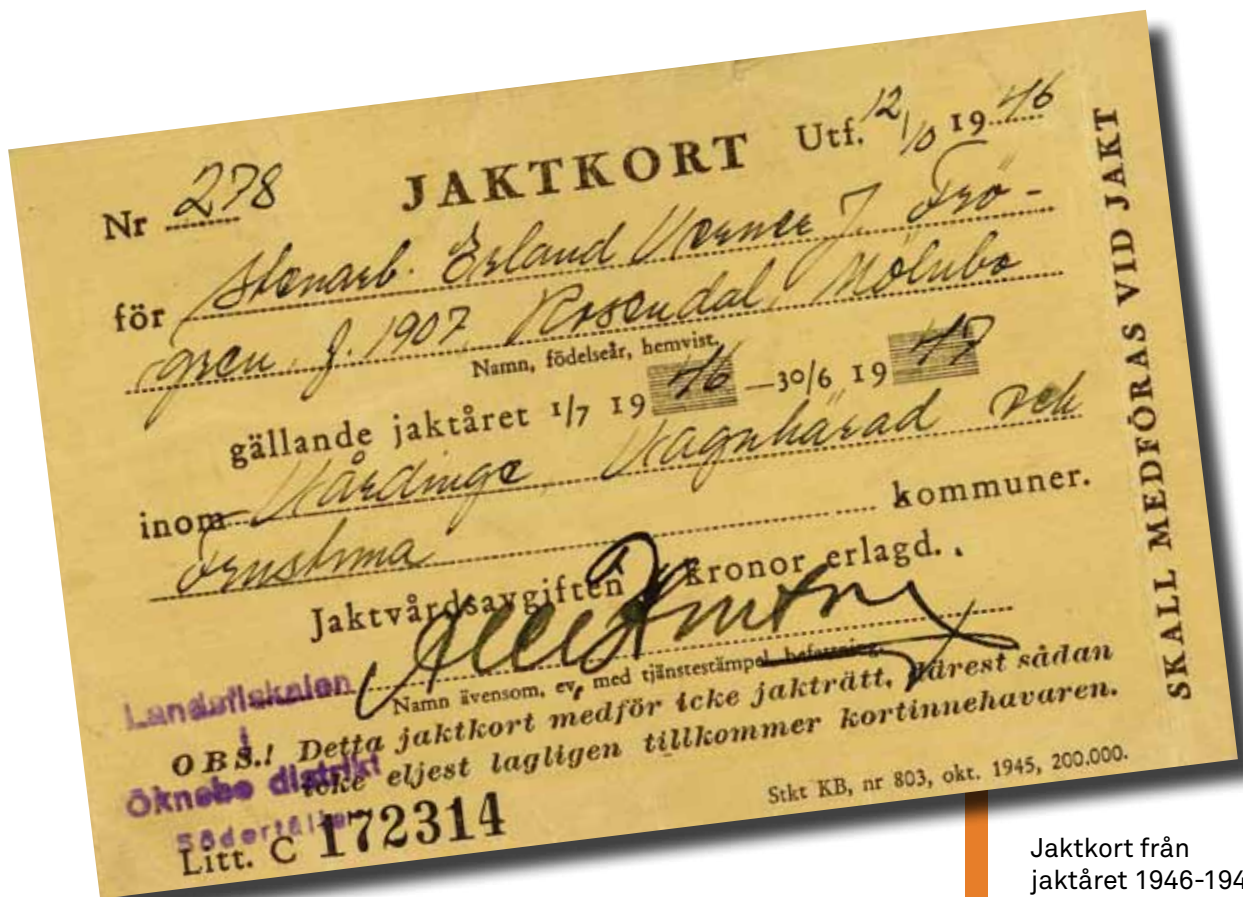 Nr 278 JAKTKORT Utf. 12/10 1946
för Stenarb. Erland Verner J. Frö-
gren, f. 1907, Rosendal, Mölnbo
Namn, födelseår, hemvist.
gällande jaktåret 1/7 1946 —30/6 1947
inom Vårdinge, Vagnhärad och
kommuner.
Jaktvårdsavgiften kronor erlagd.
Namn ävensom, ev. med tjänstestämpel befattning.
Landsfiskalen
i
Öknebo distrikt
Södertälje
OBS.! Detta jaktkort medför icke jakträtt, därest sådan
icke eljest lagligen tillkommer kortinnehavaren.
Litt. C 172314
Stkt KB, nr 803, okt. 1945, 200.000.
SKALL MEDFÖRAS VID JAKT
Jaktkort från
jaktåret 1946-194